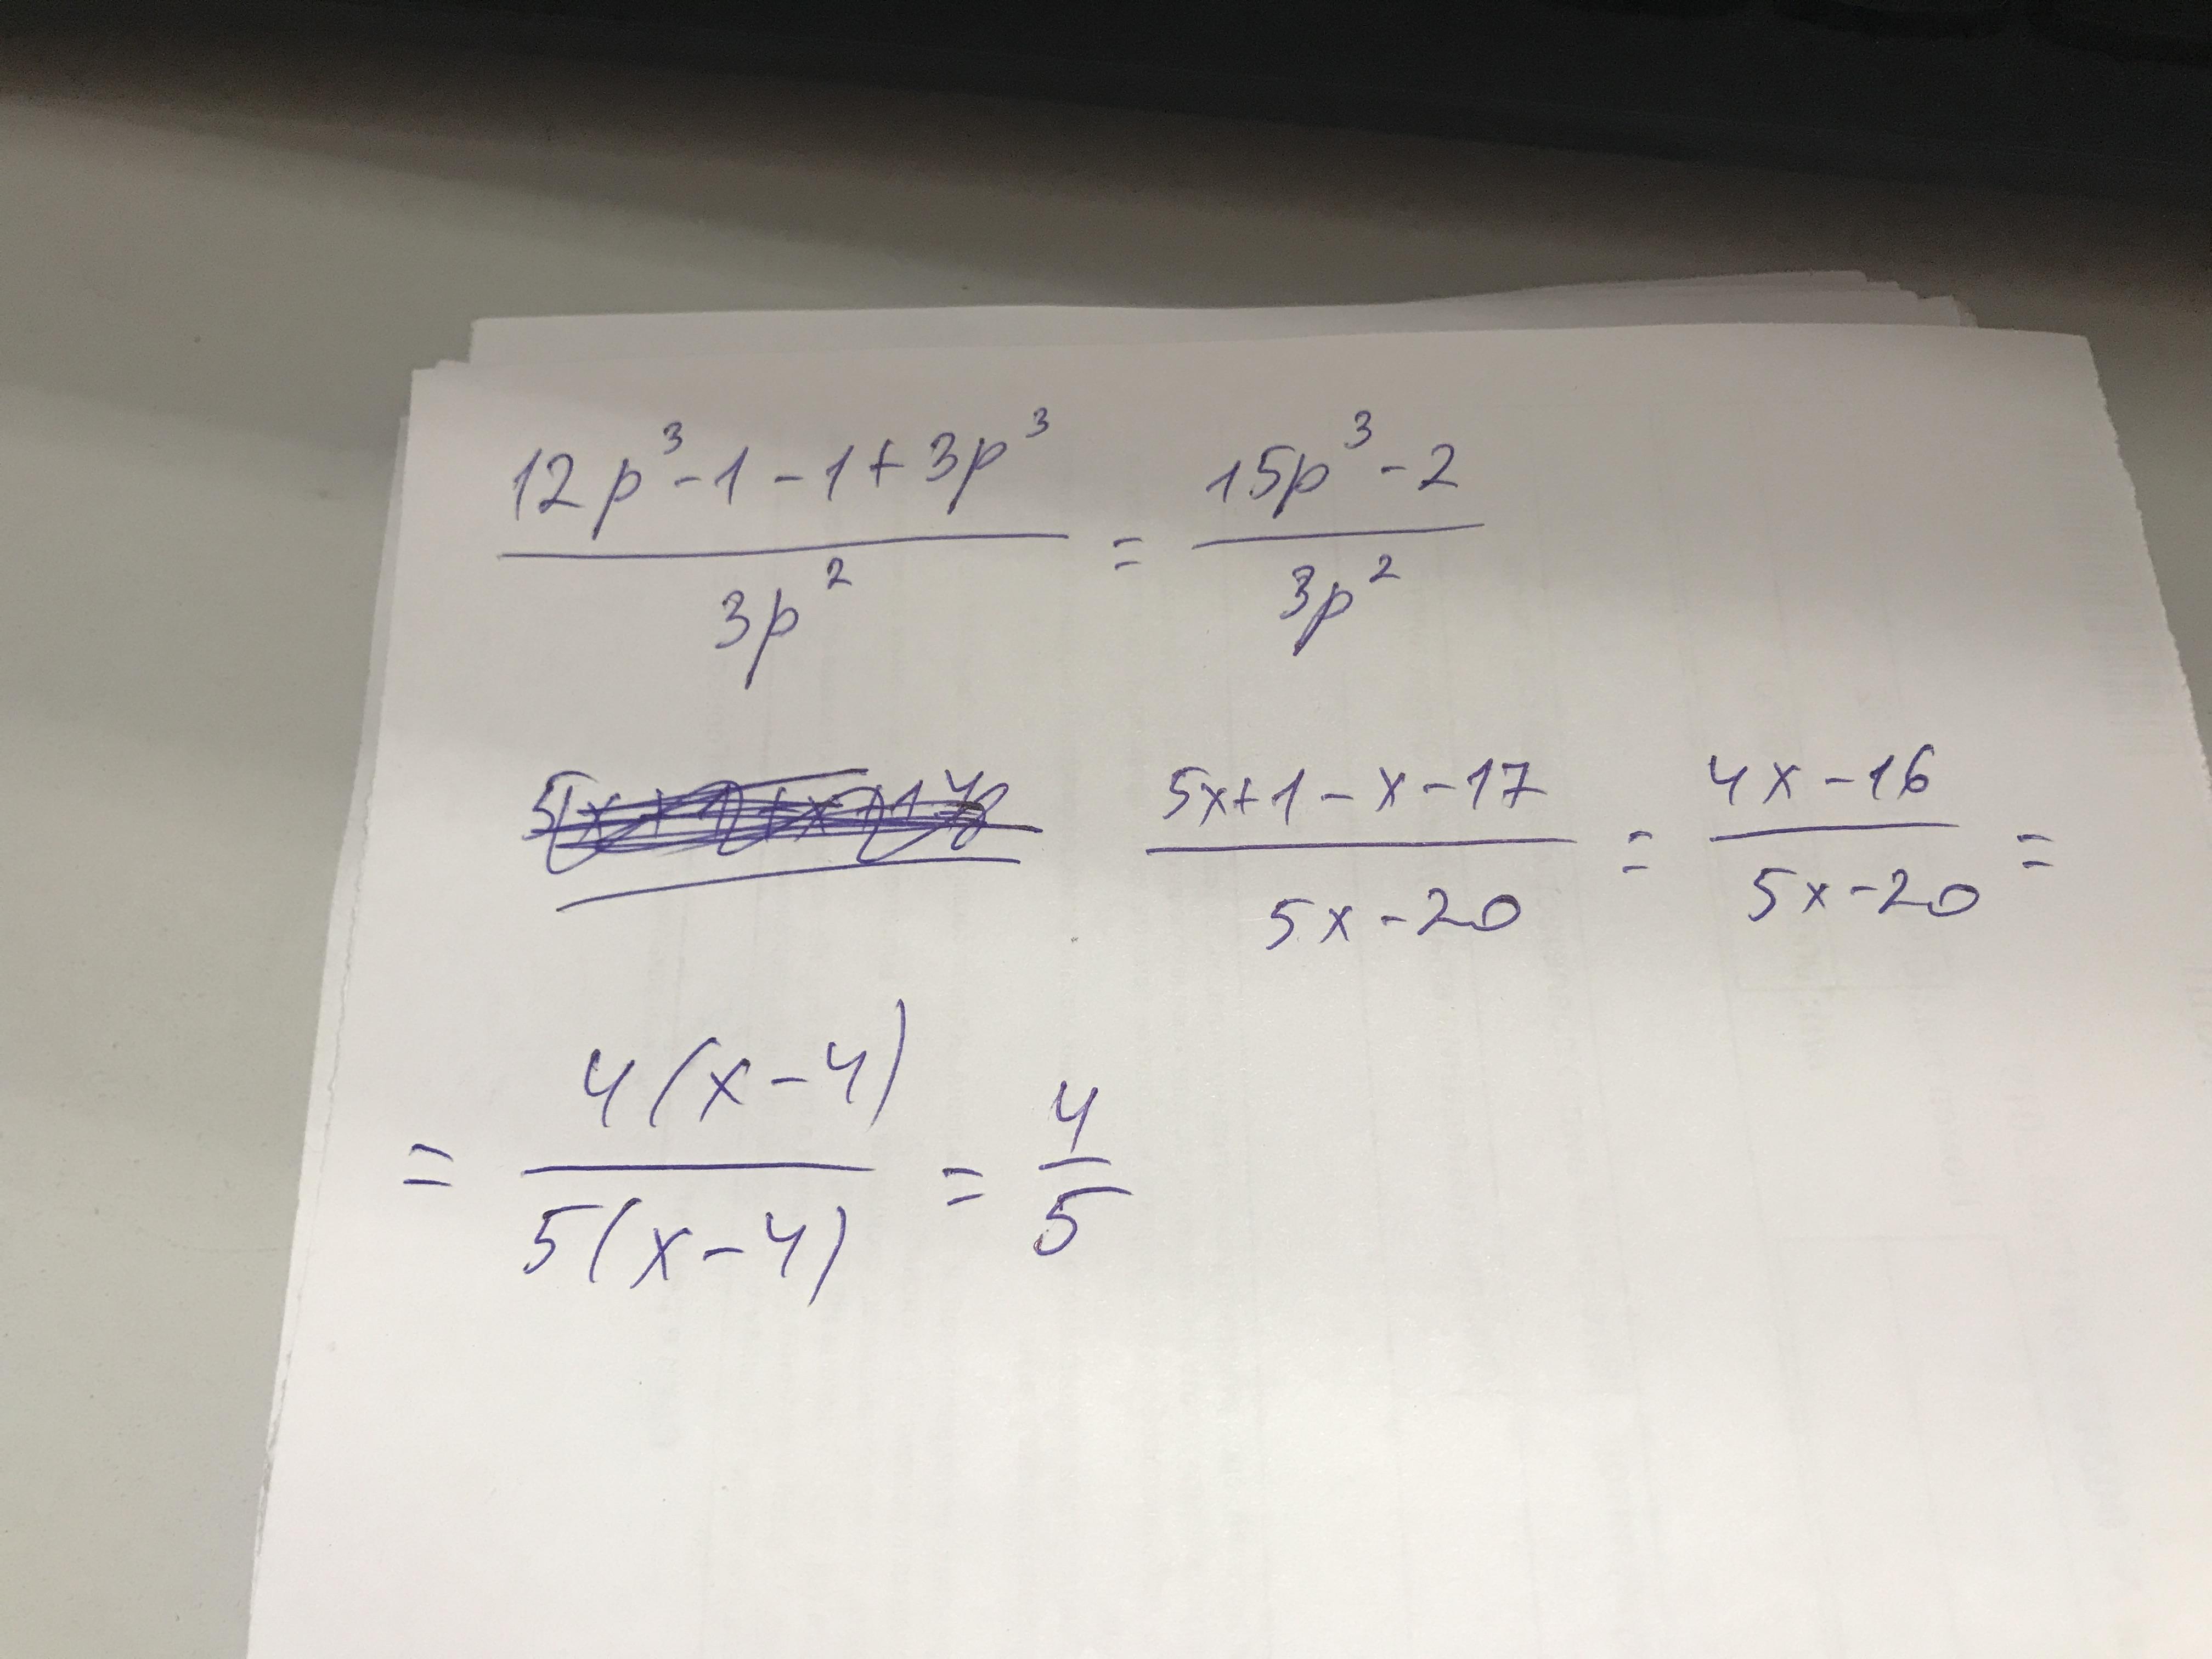 12p³-1-1+3p³ / 3p² = 15p³-2 / 3p²
5x+1-x-17 / 5x-20 = 4x-16 / 5x-20 =
= 4(x-4) / 5(x-4) = 4/5